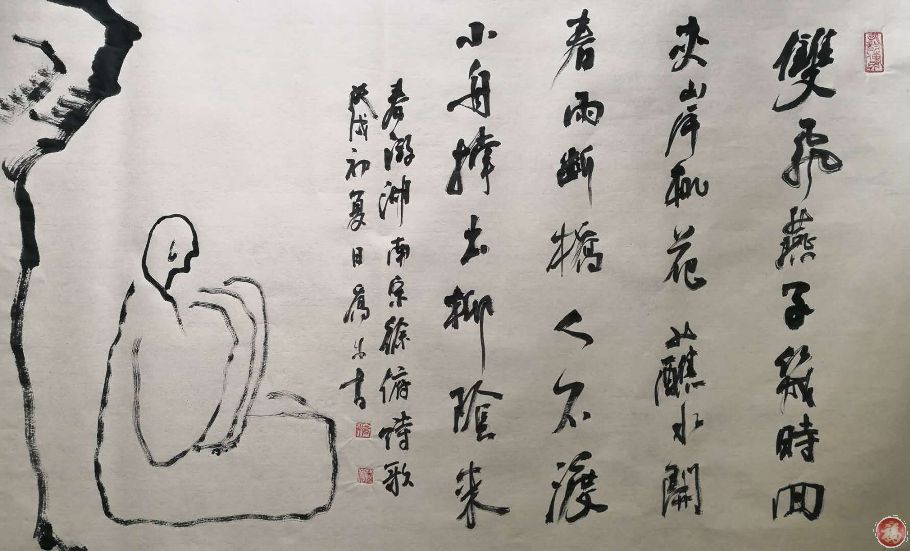 雙飛燕子幾時回
夾岸桃花蘸水開
春雨斷橋人不渡
小舟撑出柳陰來
春游湖南宋徐俯詩歌
戊戌初夏日書
福